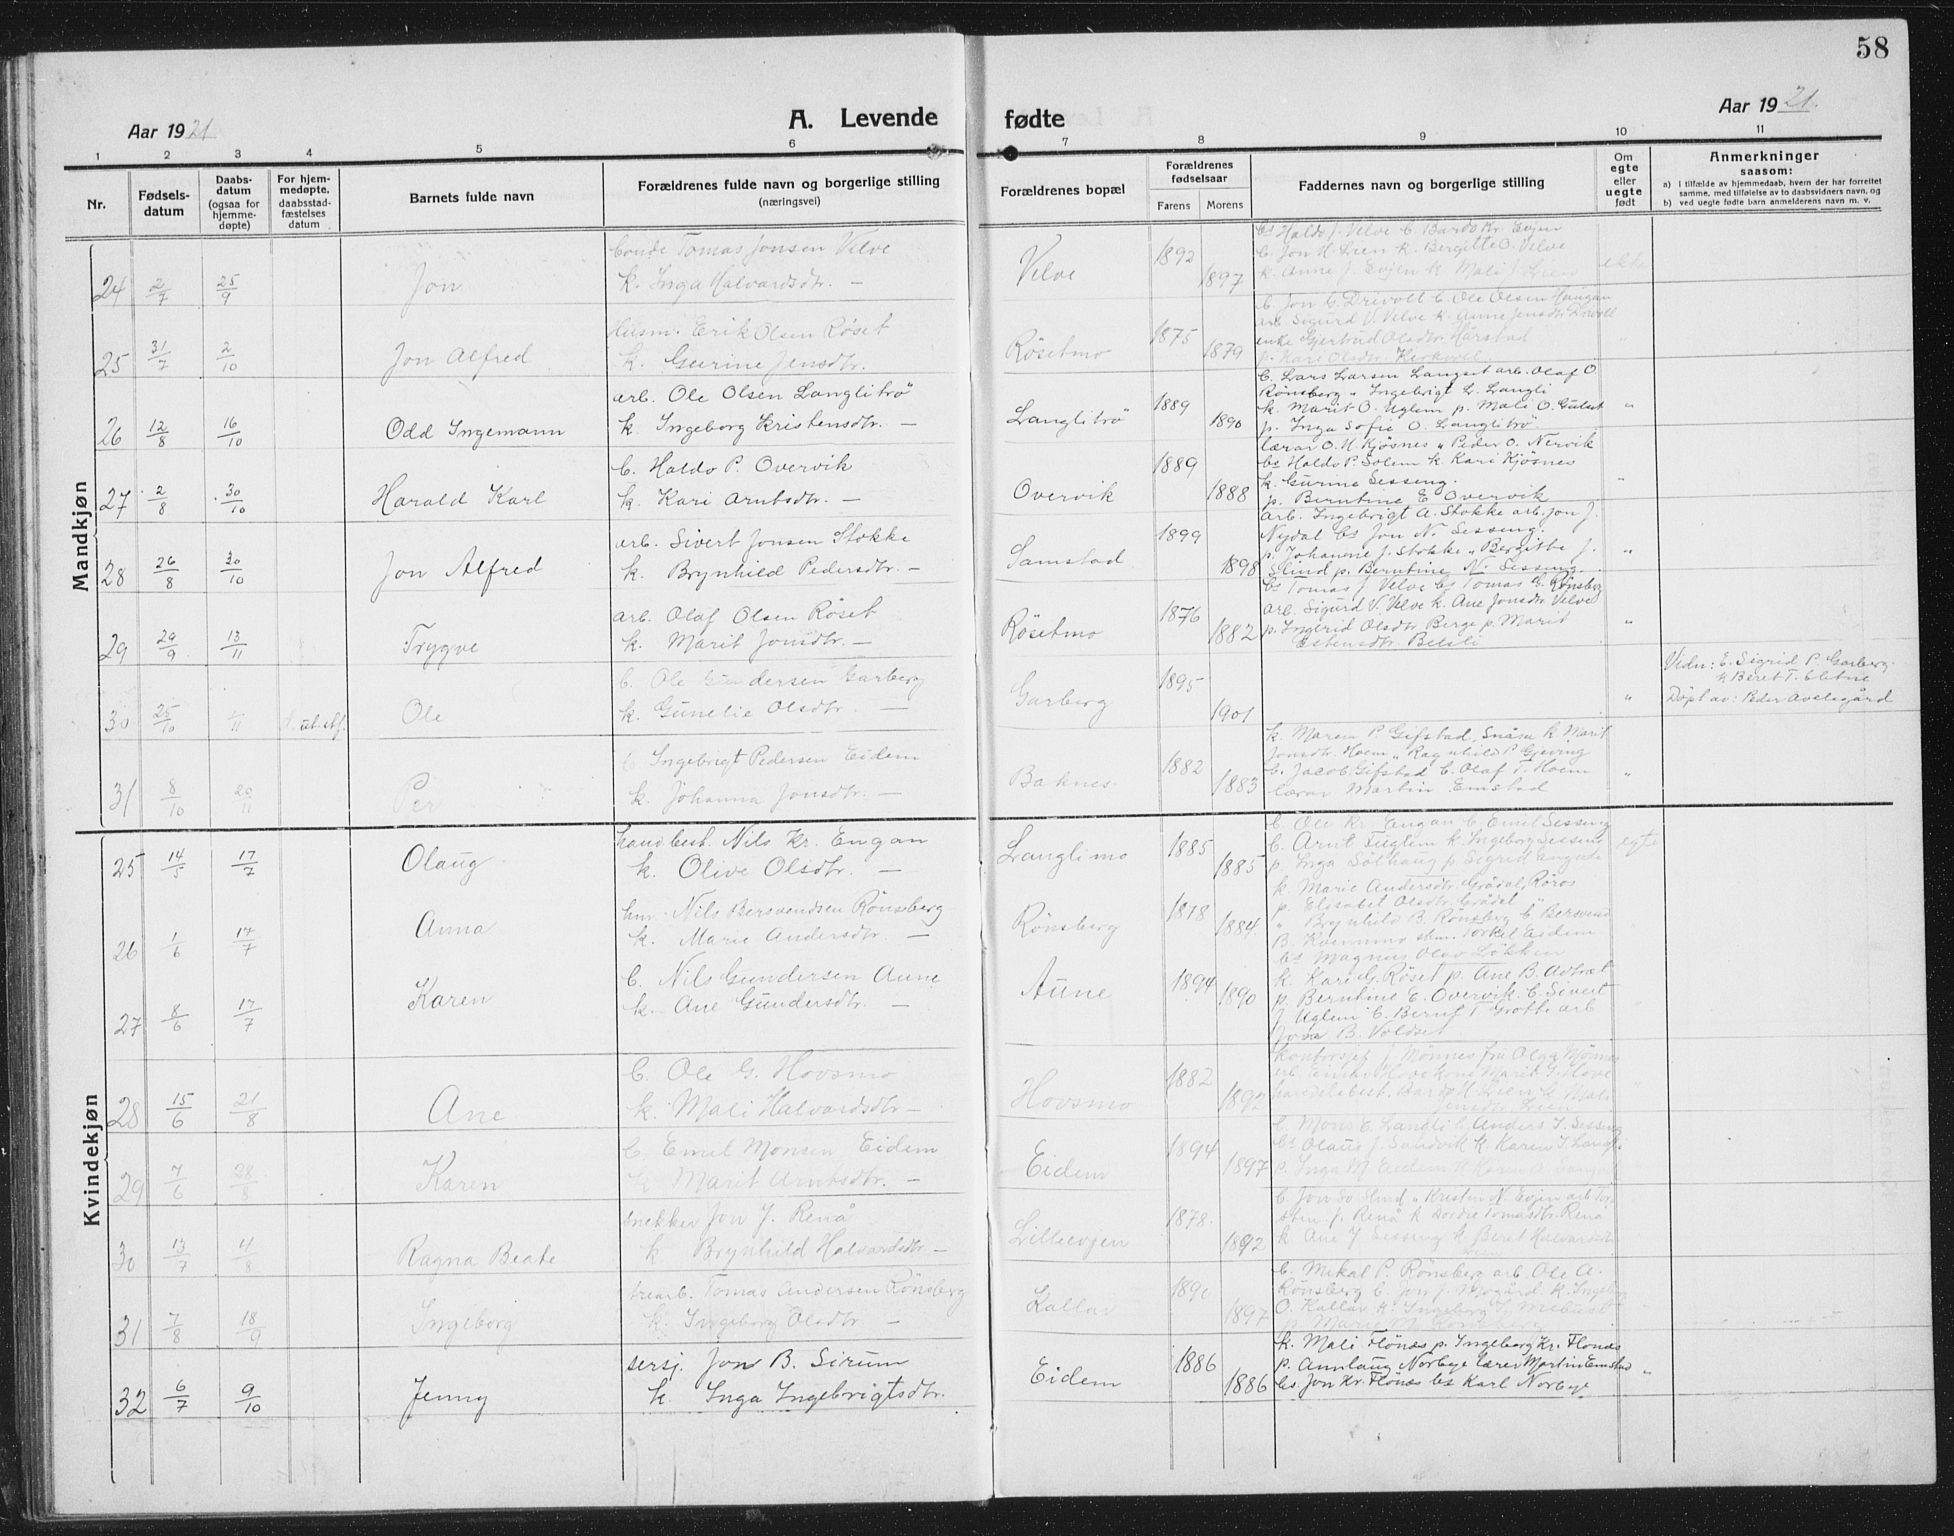 58
Aar 1921
A. Levende
fødte
Aar 1921.
1 2 3 4 5 6 7 8 9 10 11
Nr.
Fødsels-
datum
Daabs-
datum
(ogsaa for
hjemme-
døpte)
For hjem-
medøpte,
daabsstad-
fæstelses
datum
Barnets fulde navn
Forældrenes fulde navn og borgerlige stilling
(næringsvei)
Forældrenes bopæl
Forældrenes
fødselsaar
Farens Morens
Faddernes navn og borgerlige stilling
Om
egte
eller
uegte
født
Anmerkninger
saasom:
a) I tilfælde av hjemmedaab, hvem der har forrettet
samme, med tilføielse av to daabsvidners navn, og
b) ved uegte fødte barn anmelderens navn m. v.
Mandkjøn
bonde Tomas Jonsen Velve
24 2/7 25/9 Jon k. Inga Halvardsdtr. — Velve 1892 1897
bs Haldo J. Velve b. Bardo Kr. Evjen
b. Jon H. Lien k. Bergitte O. Velve
k. Anne J. Evjen k. Mali J. Lien ekte
Husm. Erik Olsen Røset
25 31/7 2/10 Jon Alfred k. Gurine Jensdtr. Røsetmo 1875 1879
b. Jon G. Drivoll b. Ole Olsen Haugan
arb. Sigurd V. Velve k. Anne Jensdtr. Drivoll
enke Gjertrud Olsdtr. Harstad "
p. Kari Olsdtr. Kirkvoll.
arb. Ole Olsen Langlitrö
26 12/8 16/10 Odd Ingemann k. Ingeborg Kristensdtr. — Langlitrö 1889 1890
b. Lars Larsen Langset arb. Olaf O
Rönsberg " Ingebrigt L. Langli
k. Marit O. Uglem p. Mali O. Gulset "
p. Inga Sofie O. Langlitrö
b. Haldo P. Overvik
27 2/8 30/10 Harald Karl k. Kari Arntsdtr. — Overvik 1889 1888
lærar O. M. Kjösnes " Peder O. Nervik
bs Haldo P. Solem k. Kari Kjösnes
k. Gurine Sesseng. "
p. Berntine E. Overvik
arb. Sivert Jonsen Stokke
28 26/8 30/10 Jon Alfred k. Brynhild Pedersdtr. — Samstad 1899 1898
arb. Ingebrigt A. Stokke arb. Jon J.
Nydal bs Jon N. Sesseng.
p. Johanne J. Stokke " Bergitte J. "
Slind p. Berntine N. Sesseng.
arb. Olaf Olsen Röset
29 29/9 13/11 Trygve k. Marit Jonsdtr. — Rösetmo 1876 1882
bs Tomas J. Velve bs Tomas E. Rönsberg
arb. Sigurd V. Velve k. Ane Jonsdtr Velve
p. Ingerid Olsdtr Berge p. Marit "
Estensdtr. Belsli
b. Ole Gundersen Garberg
30 25/10 1/11 Ole k. Gunelie Olsdtr. — Garberg 1895 1901 "
Vidn: E. Sigrid P. Garberg.
k Beret T. Eletne
Döpt av: Peder Avelsgård
b. Ingebrigt Pedersen Eidem
31 8/10 20/11 Per k. Johanna Jonsdtr. — Baknes. 1882 1883
k. Maren P. Gifstad, Snåsa k. Marit
Jonsdtr. Hoem " Ragnhild P. Gjeving
b. Jacob Gifstad b. Olaf T. Hoem "
lærar Martin Emstad
Kvindekjøn
handbest. Nils Kr. Engan
25 14/5 17/7 Olaug k. Olive Olsdtr. — Langlimo 1885 1885
b. Ole Kr. Engan b. Emel Sesseng
b. Arnt Fuglem k. Ingeborg Sesseng egte
p. Inga Solhaug p. Sigrid
hm. Nils Bersvendsen Rönsberg
26 1/6 17/7 Anna k. Marie Andersdtr. — Rönsberg 1878 1884
k. Marie Andersdtr. Grådal, Röros
p. Elisabet Olsdtr. Grådal "
" Brynhild B. Rönsberg b. Bersvend
B. Koenmo skm. Torkel Eidem
bs Magnus Olav Løkken
b. Nils Gundersen Aune
27 8/6 17/7 Karen k. Ane Gundersdtr. — Aune 1894 1890
k. Kari G. Röset p. Ane B. Advæt
p. Berntine E. Overvik b. Sivert
J. Uglem b. Bernt T. Grotte arb
B. Voldset
b. Ole G. Hovsmo
28 15/6 21/8 Ane k. Mali Halvardsdtr — Hovsmo 1882 1892
kontorsjef J. Mönnes fru Olga Mönnes
handelsbest. Bardo H. Lien k. Mali
Jensdtr. Lien
b. Emel Monsen Eidem
29 7/6 28/8 Karen k. Marit Arntsdtr. — Eidem 1894 1897
b. Mons E. Langli b. Anders I. Sesseng
bs Olaug J. Sandvik k. Karen I. Langli
p. Inga M. Eidem
snekker Jon J. Renå
30 13/7 4/8 Ragna Beate k. Brynhild Halvardsdtr — Lilleevjen 1878. 1892
b. Jon Slind " Kristen N. Evjen arb Tor-
sten J. Renå k Dordie Tomasdtr. Renå
k Ane J Sesseng k Beret Halvardsdtr
trearb. Tomas Andersen Rönsberg
31 7/8 18/9 Ingeborg k. Ingeborg Olsdtr — Kallar 1890 1897
b. Mikal P. Rönsberg arb. Ole A.
Rönsberg b. Jon J. Mogård k. Ingeborg
O. Kallar k. Ingeborg T. Mebust
p. Marie M. Rönsberg
sersj. Jon B. Sirum
32 6/7 9/10 Jenny k Inga Ingebrigtsdtr. Eidem 1886 1886
k. Mali Flönes p. Ingeborg Kr. Flönes
p. Annlaug Norbye lærer Martin Emstad
bs Jon Kr. Flönes bs Karl Norbye "